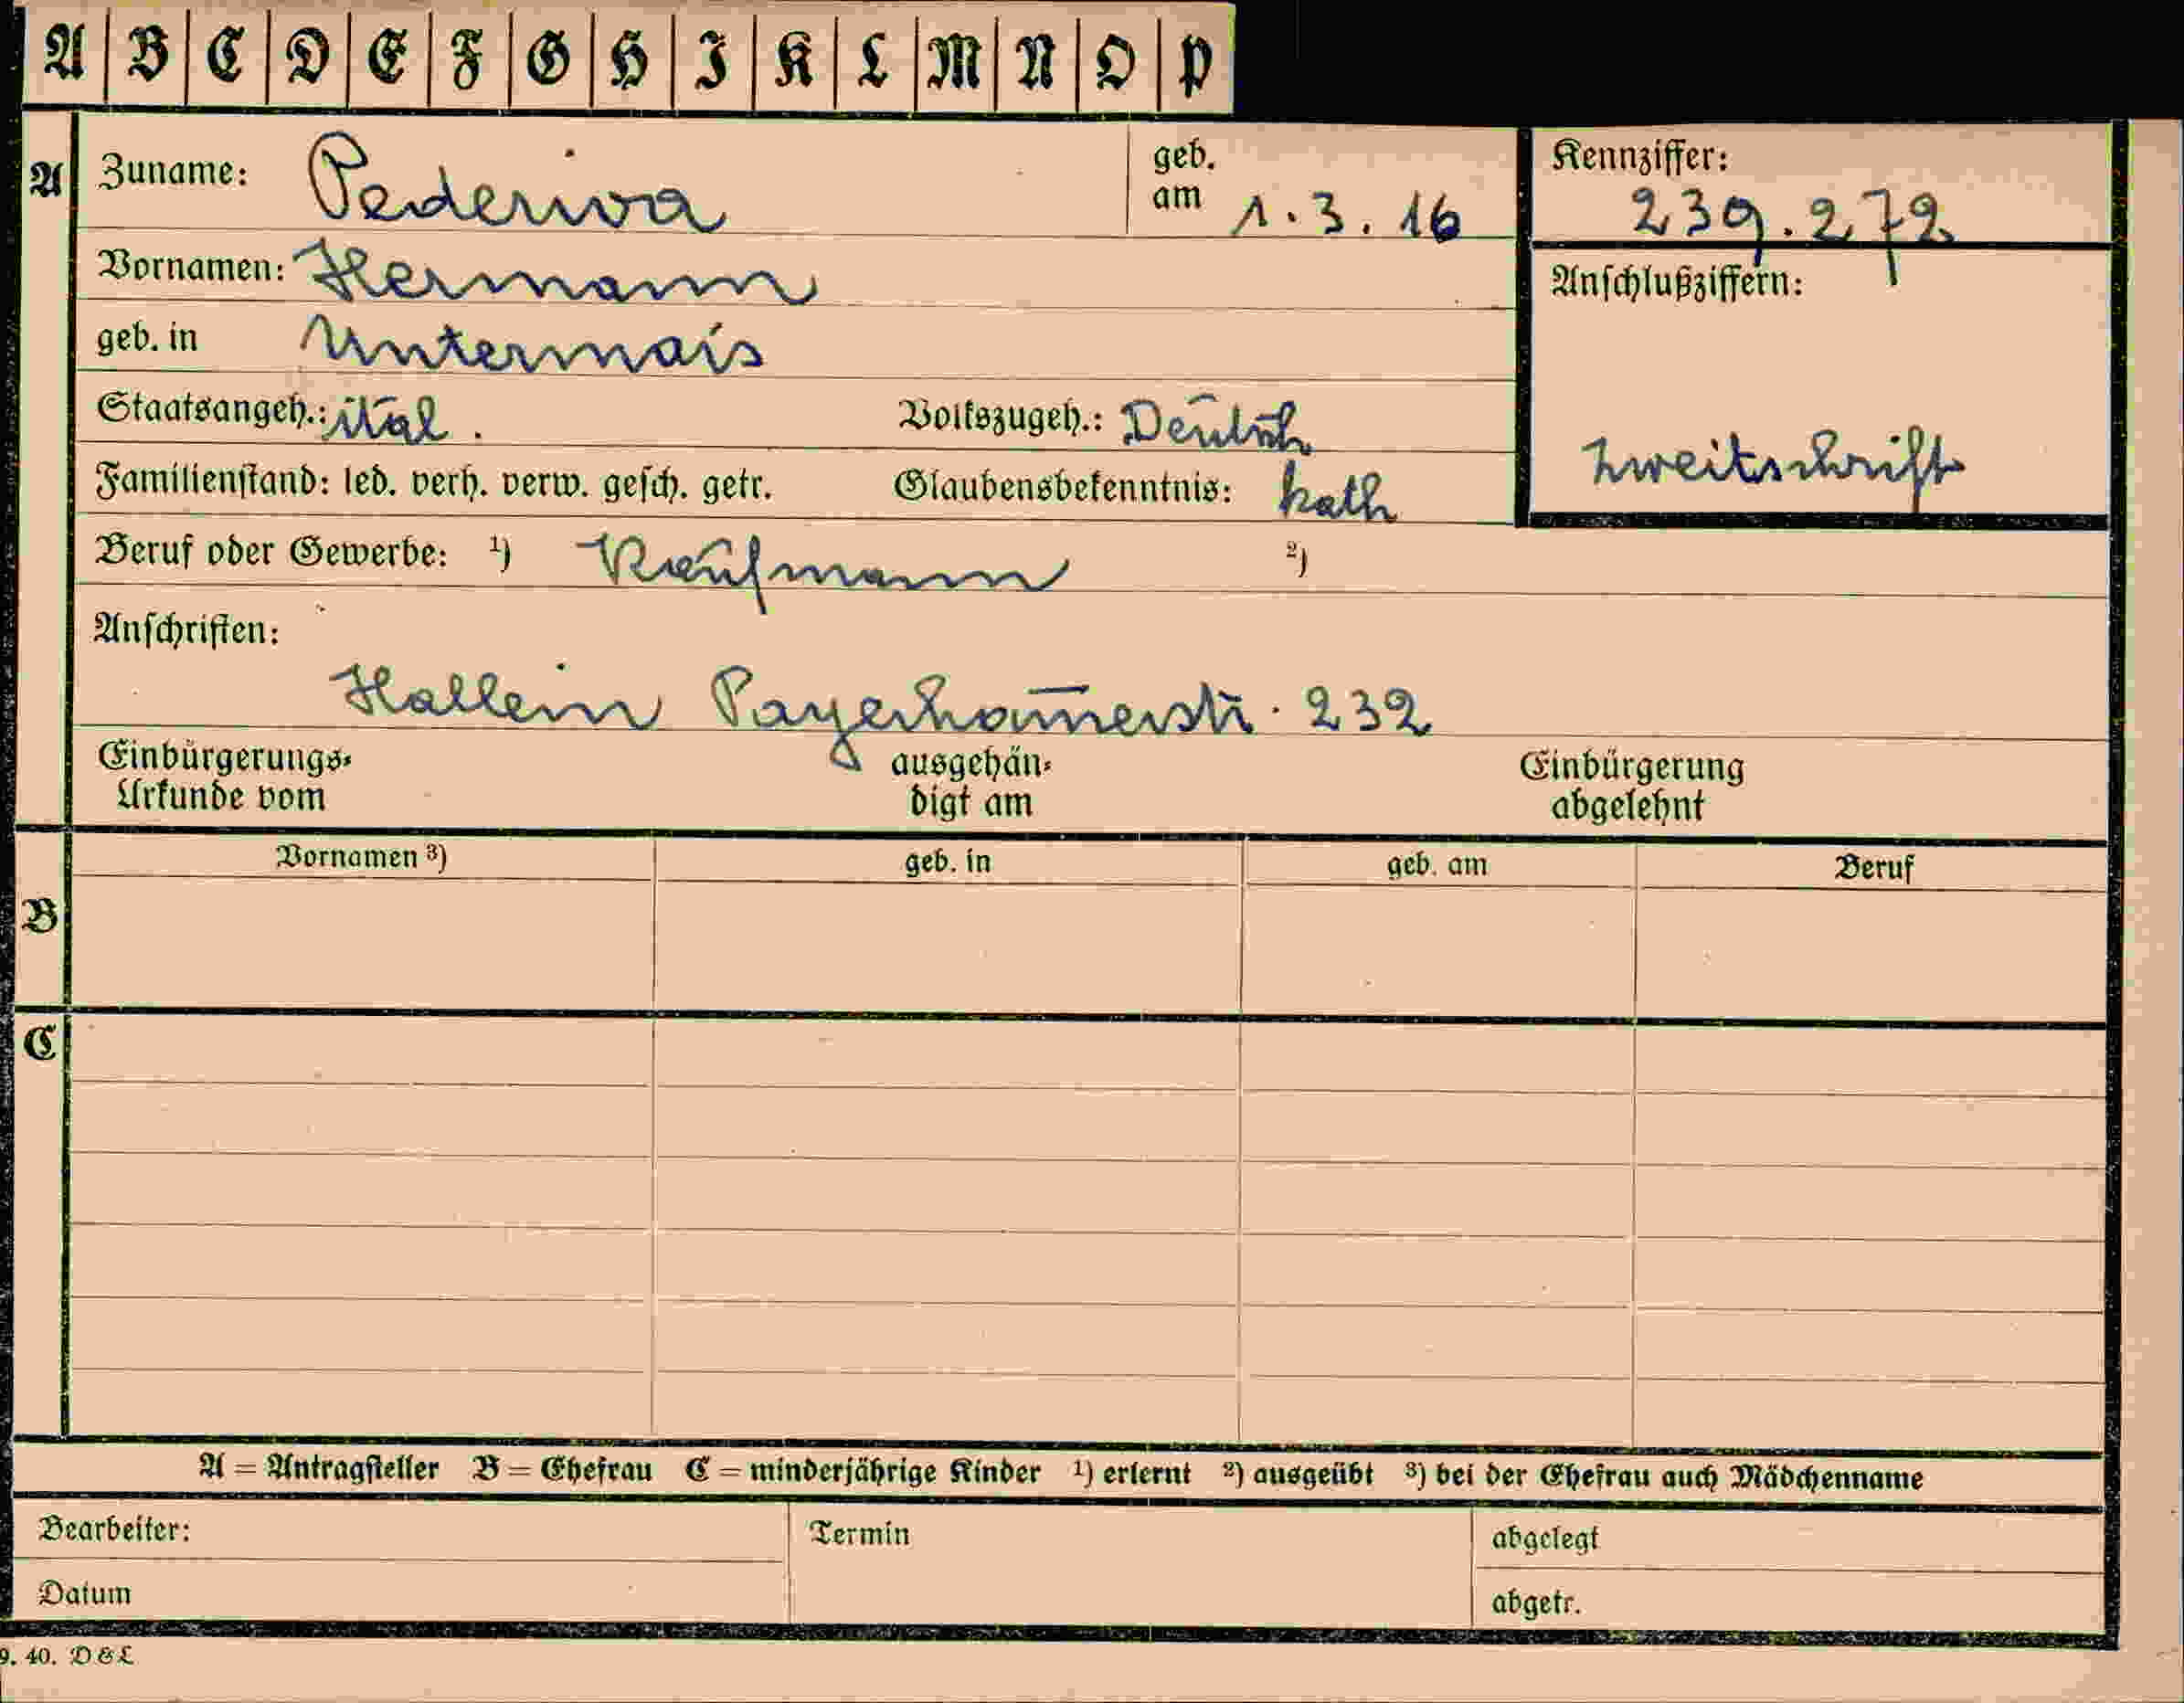 A B C D E F G H I K L M N O P
A Zuname: Pederiva geb. am 1.3.16 Kennziffer: 239.272
Vornamen: Hermann Anschlußziffern:
geb. in Untermais
Staatsangeh.: ital. Volkszugeh.: Deutsch Zweitschrift
Familienstand: led. verh. verw. gesch. getr. Glaubensbekenntnis: kath
Beruf oder Gewerbe: ¹) Kaufmann ²)
Anschriften:
Hallein Payerham̄erstr. 232
Einbürgerungs- ausgehän- Einbürgerung
Urkunde vom digt am abgelehnt
Vornamen ³) geb. in geb. am Beruf
B
C
A = Antragsteller B = Ehefrau C = minderjährige Kinder ¹) erlernt ²) ausgeübt ³) bei der Ehefrau auch Mädchenname
Bearbeiter: Termin abgelegt
Datum abgetr.
9. 40. D & L